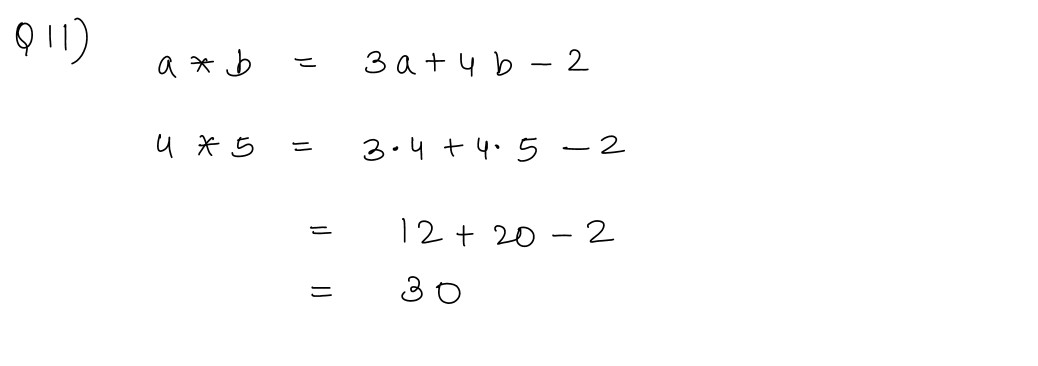 Q 11)
a * b = 3a + 4b - 2
4 * 5 = 3·4 + 4·5 - 2
= 12 + 20 - 2
= 30